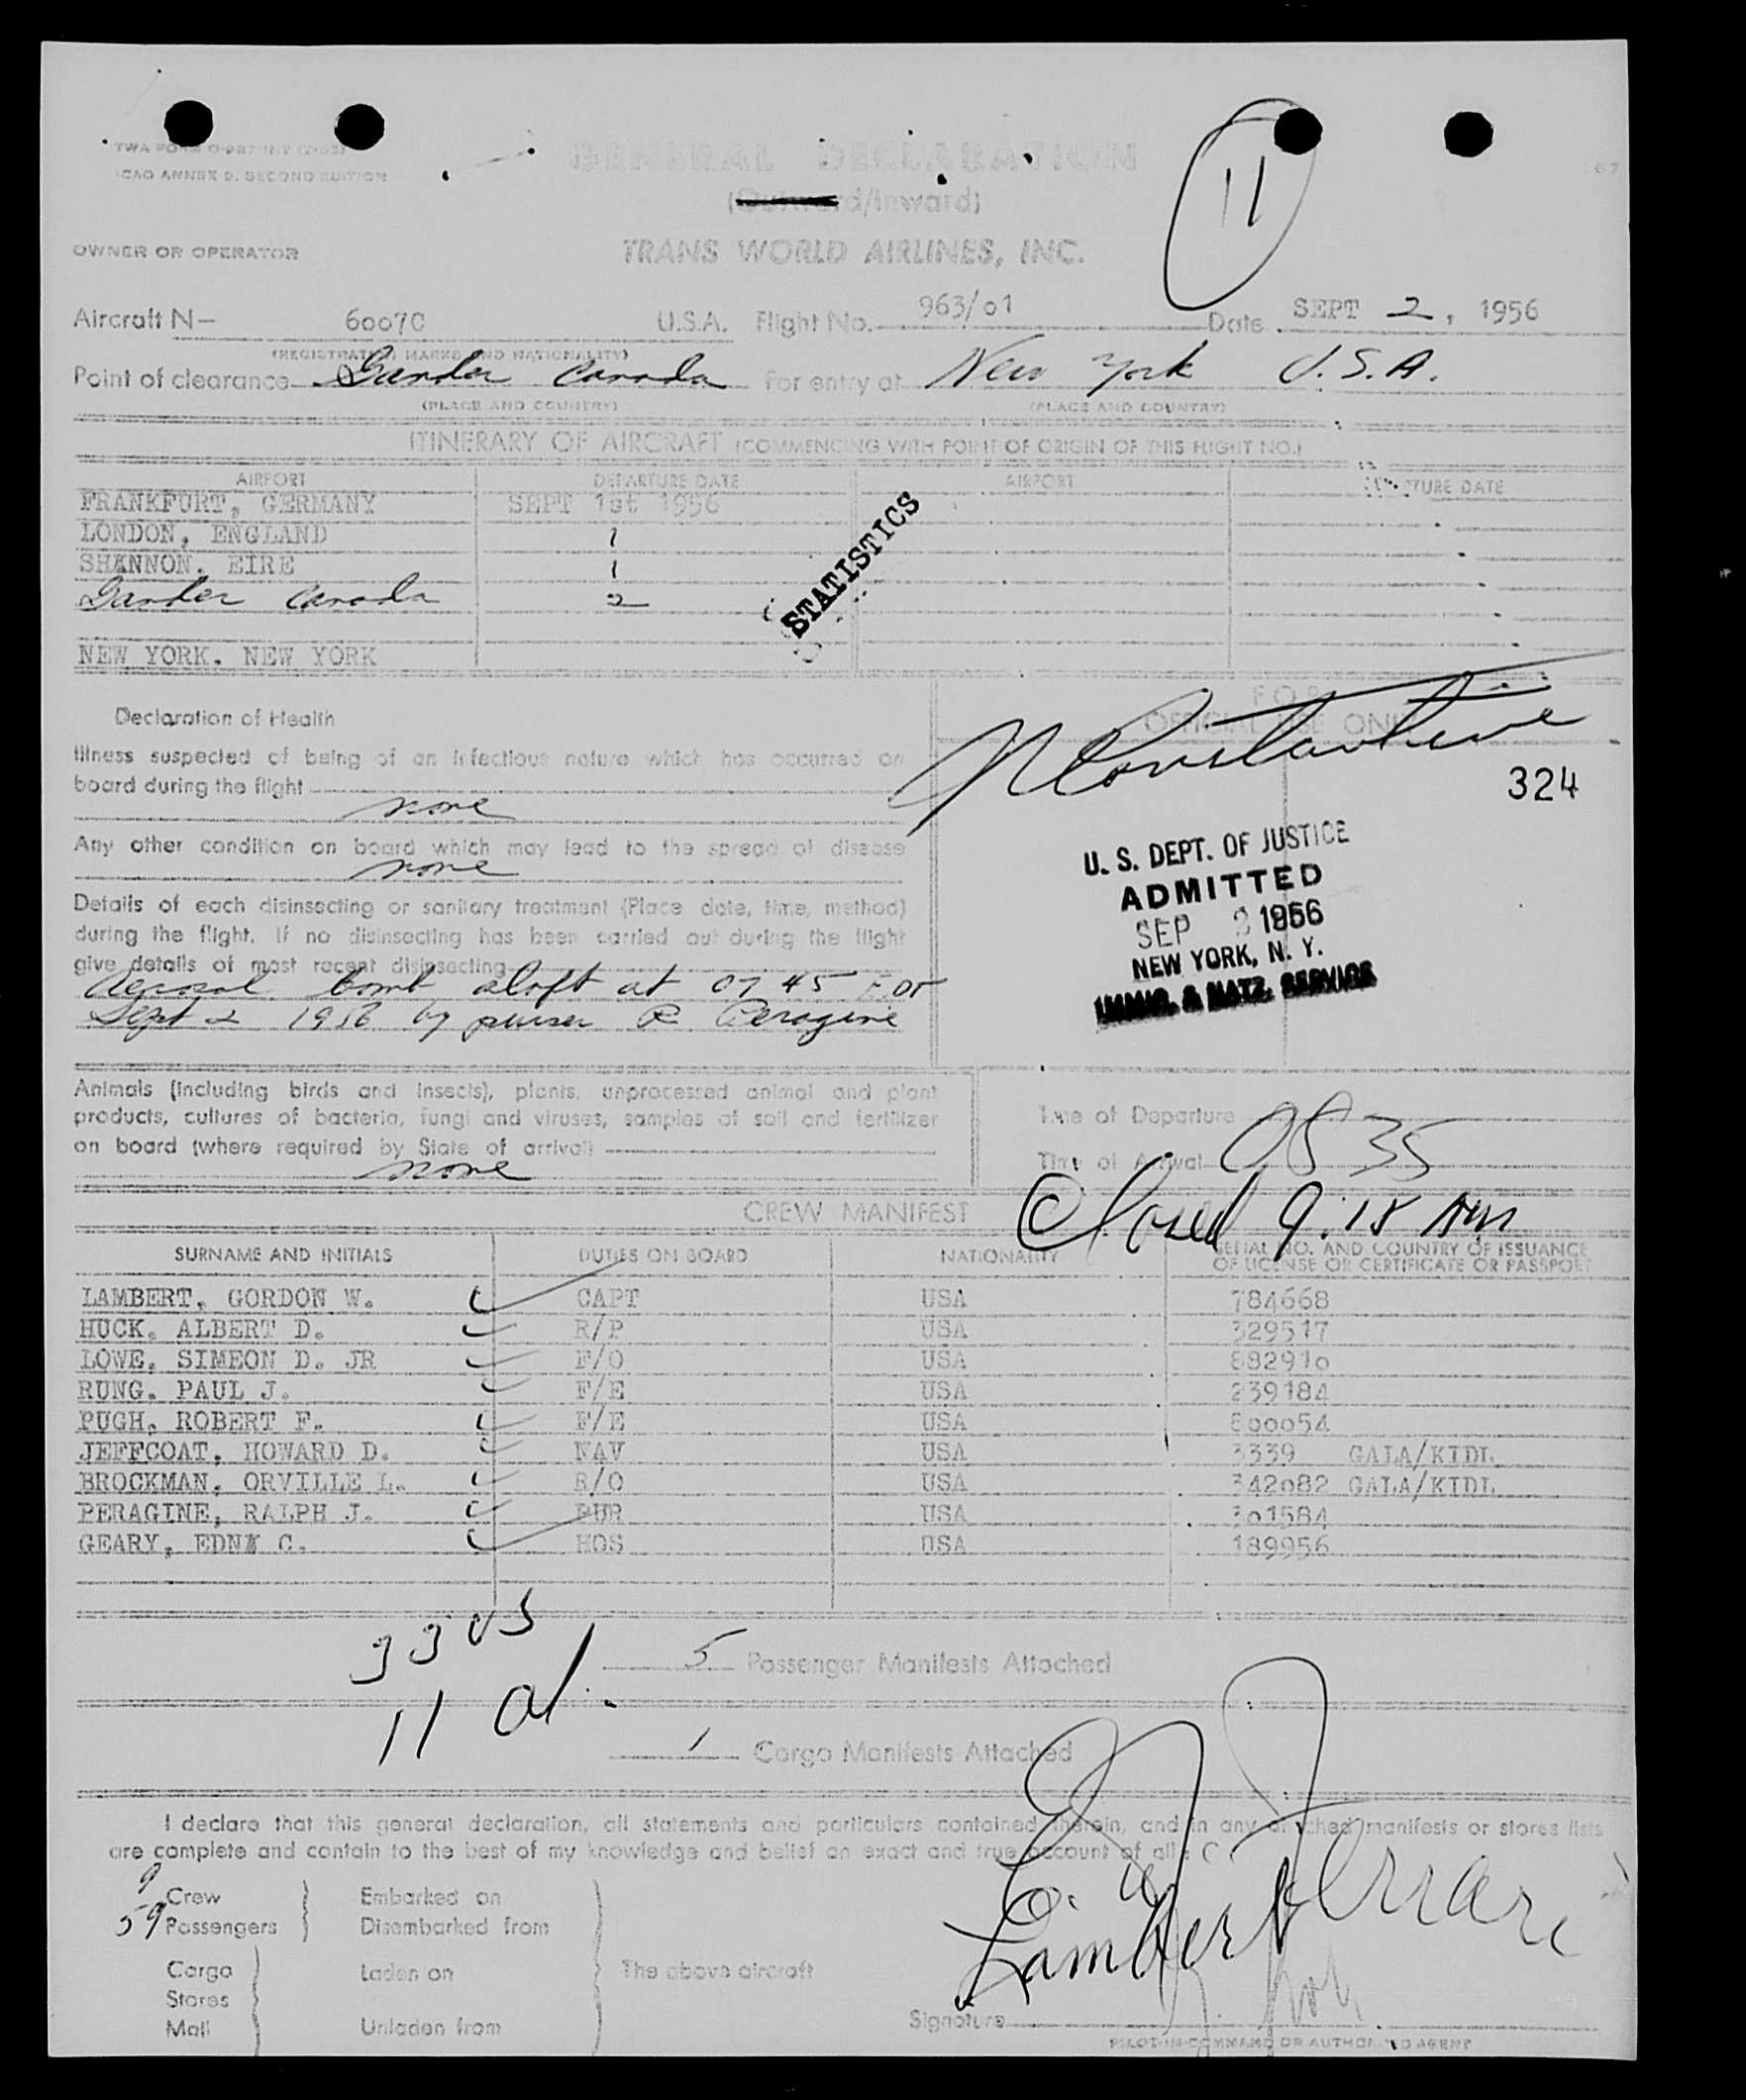 ICAO ANNEX 9, SECOND EDITION
GENERAL DECLARATION
(Outward/Inward)
11
OWNER OR OPERATOR
TRANS WORLD AIRLINES, INC.
Aircraft N- 6007C U.S.A. Flight No. 963/01 Date SEPT 2, 1956
(REGISTRATION MARKS AND NATIONALITY)
Point of clearance Gander Canada For entry at New York U.S.A.
(PLACE AND COUNTRY) (PLACE AND COUNTRY)
ITINERARY OF AIRCRAFT (COMMENCING WITH POINT OF ORIGIN OF THIS FLIGHT NO.)
AIRPORT DEPARTURE DATE AIRPORT DEPARTURE DATE
FRANKFURT, GERMANY SEPT 1st 1956
LONDON, ENGLAND 1
SHANNON. EIRE 1
Gander Canada 2
STATISTICS
NEW YORK. NEW YORK
FOR
OFFICIAL USE ONLY
Declaration of Health
Illness suspected of being of an infectious nature which has occurred on
board during the flight
none
324
Any other condition on board which may lead to the spread of disease
none
U. S. DEPT. OF JUSTICE
ADMITTED
SEP 1956
NEW YORK, N. Y.
IMMIG. & NATZ. SERVICE
Details of each disinsecting or sanitary treatment (Place date, time, method)
during the flight. If no disinsecting has been carried out during the flight
give details of most recent disinsecting
Aerosol bomb aloft at 07 45 EDT
Sept 2 1956 by purser R Peragine
Animals (including birds and insects), plants, unprocessed animal and plant
products, cultures of bacteria, fungi and viruses, samples of soil and fertilizer
on board (where required by State of arrival)
none
Time of Departure
Time of Arrival 0835
Closed 9:18 AM
CREW MANIFEST
SURNAME AND INITIALS DUTIES ON BOARD NATIONALITY SERIAL NO. AND COUNTRY OF ISSUANCE
OF LICENSE OR CERTIFICATE OR PASSPORT
LAMBERT, GORDON W. CAPT USA 784668
HUCK. ALBERT D. R/P USA 329517
LOWE, SIMEON D. JR F/O USA 882910
RUNG. PAUL J. F/E USA 239184
PUGH, ROBERT F. F/E USA 800054
JEFFCOAT, HOWARD D. NAV USA 3339 GALA/KIDL
BROCKMAN, ORVILLE L. R/O USA 342082 GALA/KIDL
PERAGINE, RALPH J. PUR USA 301584
GEARY, EDNA C. HOS USA 189956
33 US
11 al.
5 Passenger Manifests Attached
1 Cargo Manifests Attached
I declare that this general declaration, all statements and particulars contained therein, and in any attached manifests or stores lists
are complete and contain to the best of my knowledge and belief an exact and true account of all:
9 Crew Embarked on
59 Passengers Disembarked from
Cargo Laden on The above aircraft
Stores
Mail Unladen from
Lambert Ferrari
Signature
PILOT-IN-COMMAND OR AUTHORIZED AGENT